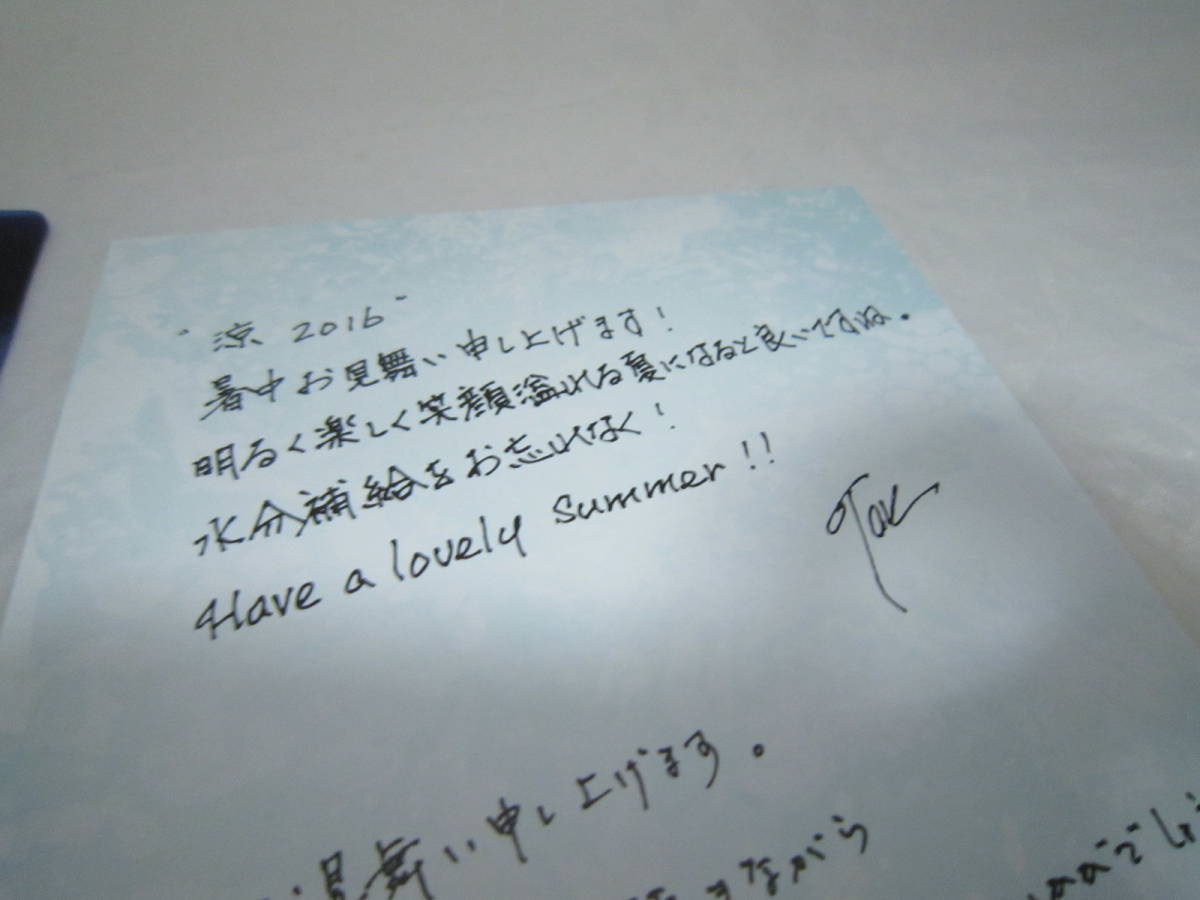 "涼 2016"
暑中お見舞い申し上げます!
明るく楽しく笑顔溢れる夏になると良いですね。
水分補給をお忘れなく!
Have a lovely summer!!
Tak
見舞い申し上げます。
ながら